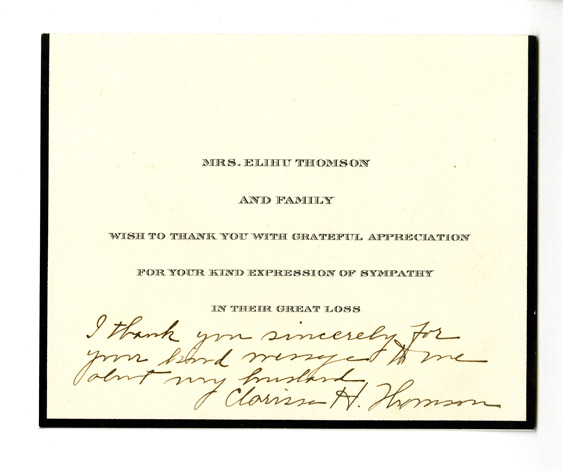 MRS. ELIHU THOMSON
AND FAMILY
WISH TO THANK YOU WITH GRATEFUL APPRECIATION
FOR YOUR KIND EXPRESSION OF SYMPATHY
IN THEIR GREAT LOSS
I thank you sincerely for
your kind message to me
about my husband
Clarissa H. Thomson